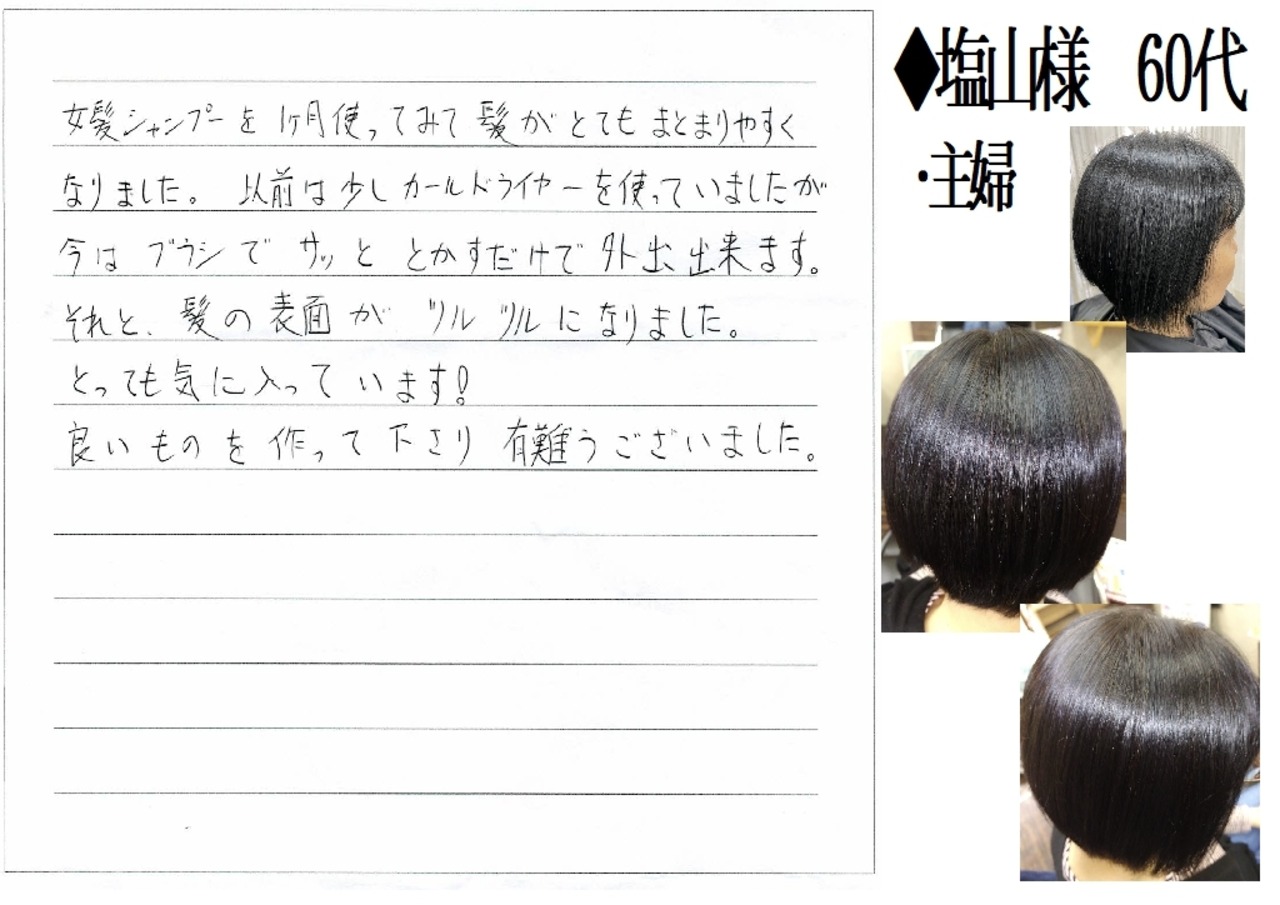 女髪シャンプーを1ヶ月使ってみて髪がとてもまとまりやすく
なりました。以前は少しカールドライヤーを使っていましたが
今はブラシでサッととかすだけで外出出来ます。
それと、髪の表面がツルツルになりました。
とっても気に入っています!
良いものを作って下さり有難うございました。
◆塩山様 60代
・主婦